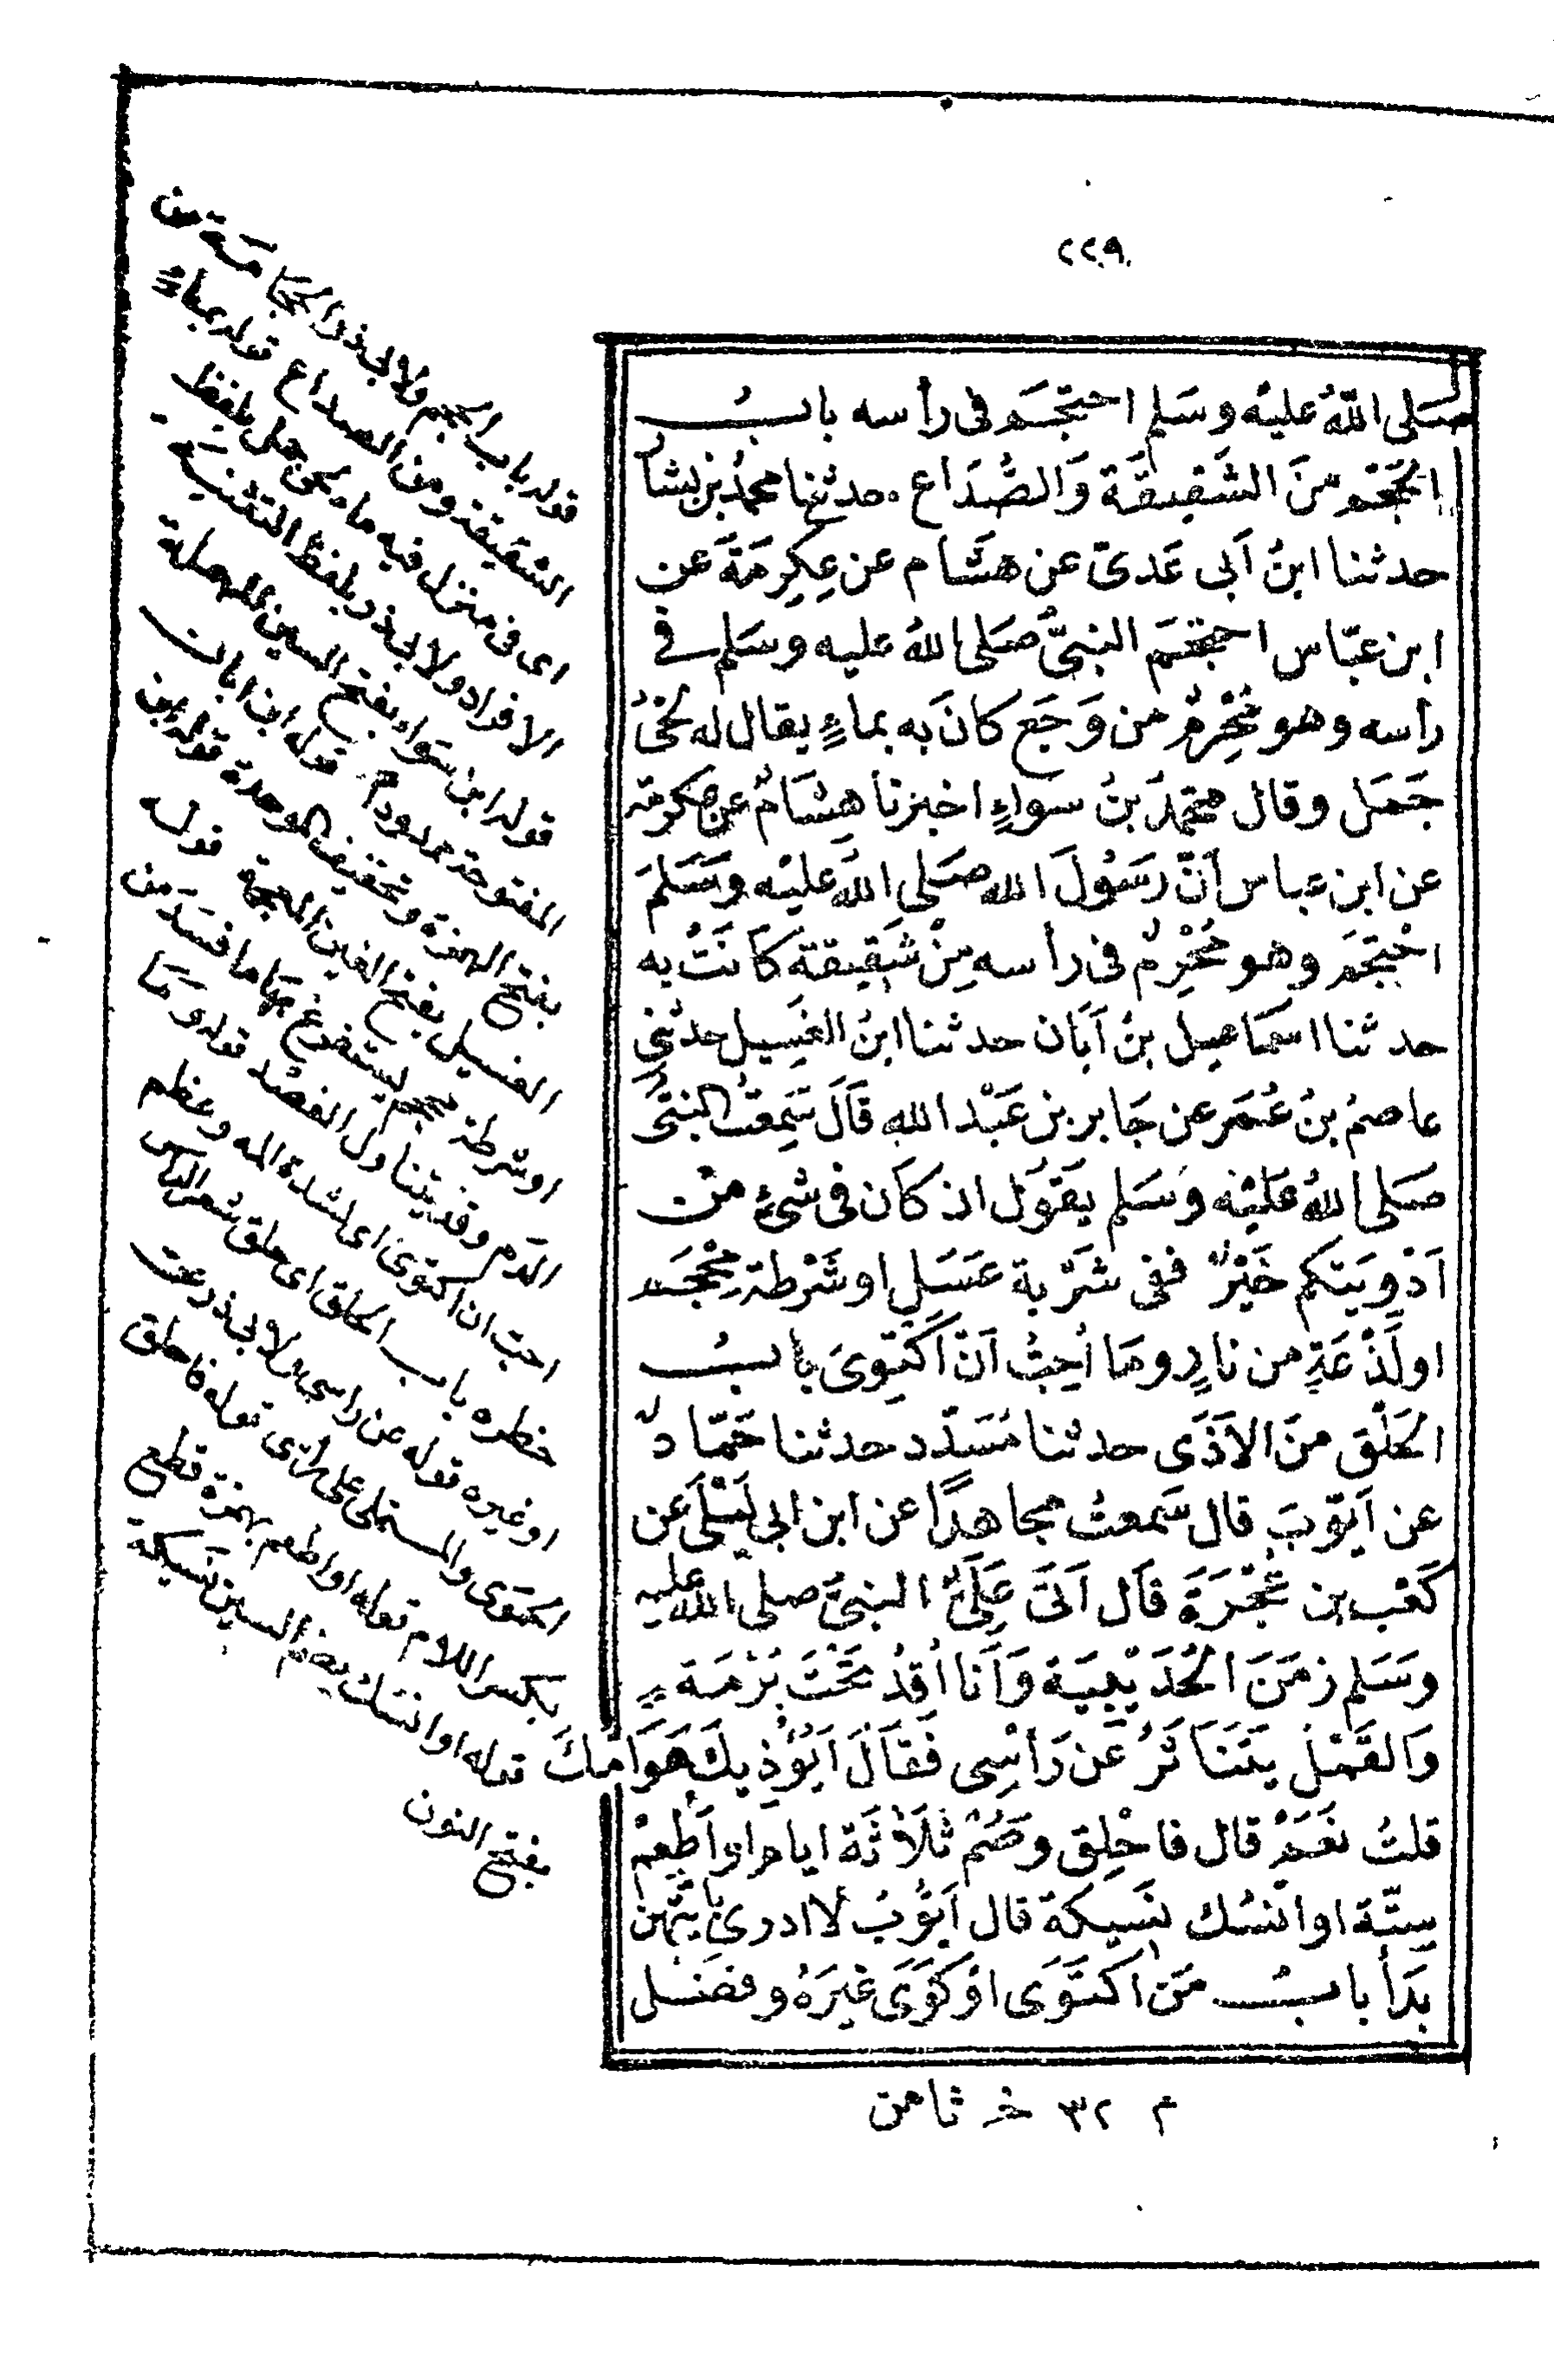 ٢٢٩
صَلى اللّهُ عليْه وسَلم احتجَم فى رأسه بابُ
الحَجْم منَ الشَّقِيقَة وَالصُّدَاع . حدثنا محمدُ بن بشار
حدثنا ابنُ اَبى عَدىّ عن هشَام عن عِكرِمَةَ عن
ابن عبّاس احتجَم النبىُّ صَلى اللهُ عليه وسَلم فى
رأسه وهو مُحْرِمٌ من وَجَع كانَ به بماءٍ يقال له لَحْىُ
جَمَل وقال محمّدُ بنُ سواءٍ اخبرنا هِشَامٌ عن عكرمة
عن ابن عباس اَنّ رسُولَ الله صَلى اللّهُ عليْه وسَلمَ
احْتجَمَ وهو مُحْرِمٌ فى رأسه مِنْ شَقِيقة كَانَتْ به
حدثنا اسمَاعيل بنُ اَبَان حدثنا ابنُ الغَسِيل حدثنى
عاصمُ بنُ عُمَر عن جَابر بن عَبْد الله قَالَ سَمِعْتُ النبىَّ
صَلى اللهُ عَليْه وَسَلم يقوُل ان كَان فى شىْءٍ منْ
اَدْوِيَتكم خَيْرٌ ففى شَرْبة عَسَلٍ او شَرْطة مِحْجَم
او لَذْعَةٍ من نارٍ وما اُحِبُّ اَنْ اَكتوِىَ بابُ
الحَلْق منَ الاَذَى حدثنا مُسَدّد حدثنا حَمّادٌ
عن اَيّوبَ قال سَمعتُ مجاهدًا عن ابن ابى لَيْلَى عن
كَعْب بن عُجْرَةَ قَال اَتَى عَلَىَّ النبىُّ صلى الله عليه
وسَلم زمَنَ الحُدَيْبِيَة وَاَنا اُوقدُ تحْتَ بُرْمَة
وَالقَمْلُ يَتَنَاثَرُ عَن رَأسِى فَقَالَ اَيُؤْذِيكَ هَوَامُّكَ
قلتُ نَعَمْ قال فاحْلِق وَصُمْ ثَلَاثَة ايام او اَطْعِمْ
سِتّة او انسُك نَسِيكة قال اَيّوبُ لا ادرى بِاَيّتهِن
بَدَأ بابُ مَن اكتَوَى اوْ كَوَى غيرَهُ وفضل
م ٣٢ خ ثامن
قوله باب الحجم ولابى ذر الحجامة من
الشقيقة ومن الصداع قوله بماءٍ
اى فى منزل فيه ماء لحى جمل بلفظ
الافراد ولابى ذر بلفظ التثنية
قوله ابن سواء بفتح السين المهملة
المفتوحة ممدودا قوله ابن ابان
بفتح الهمزة وتخفيف الموحدة قوله ابن
الغسيل بفتح الغين المعجمة قوله
او شرطة محجم يستفرغ بها ما فسَد من
الدَم وقد يتناول الفصْد قوله ومَا
احبّ ان اكتوى اى لشدة المه وعظم
خطره باب الحلق اى حلق شعر الرأس
او غيره قوله عن راسى ولابى ذر عن
الحموى والمستملى على رأسى قوله فاحلق
بكسر اللام قوله او اطعم بهمزة قطع
قوله او انسك بضم السين نسيكة
بفتح النون